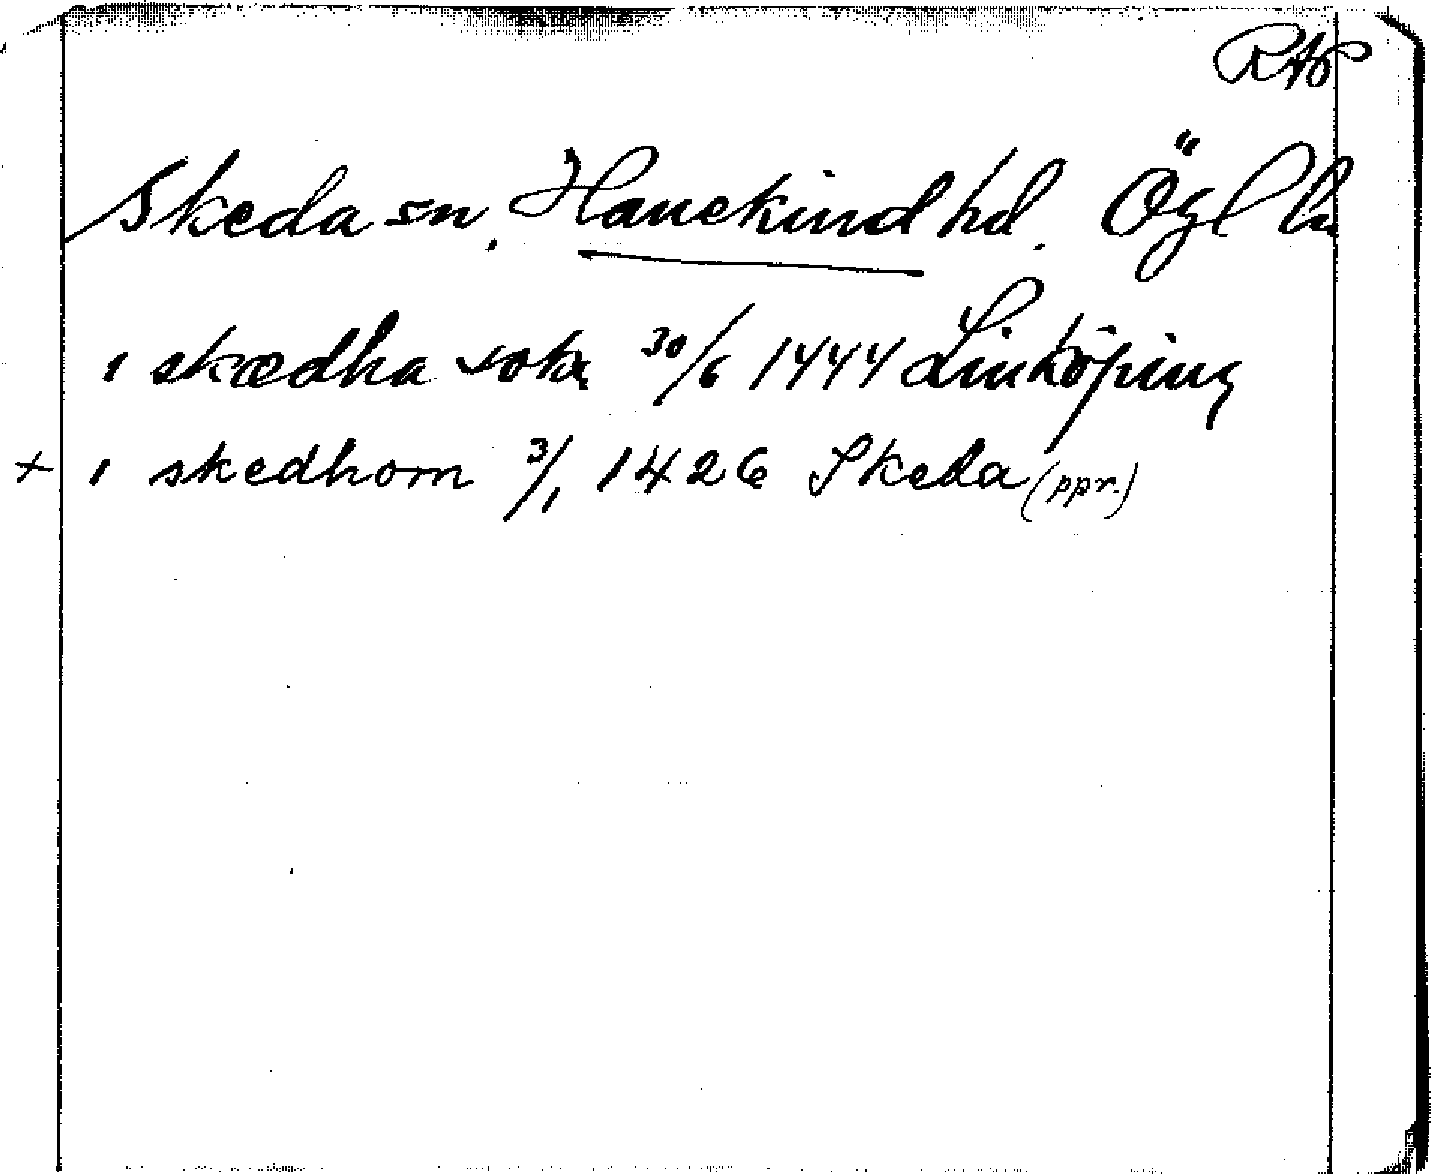 RAP
Skeda sn, Hanekind hd. Ögl ln
i skædha sokn 30/6 1444 Linköping
+ i skedhom 3/1 1426 Skeda (ppr.)